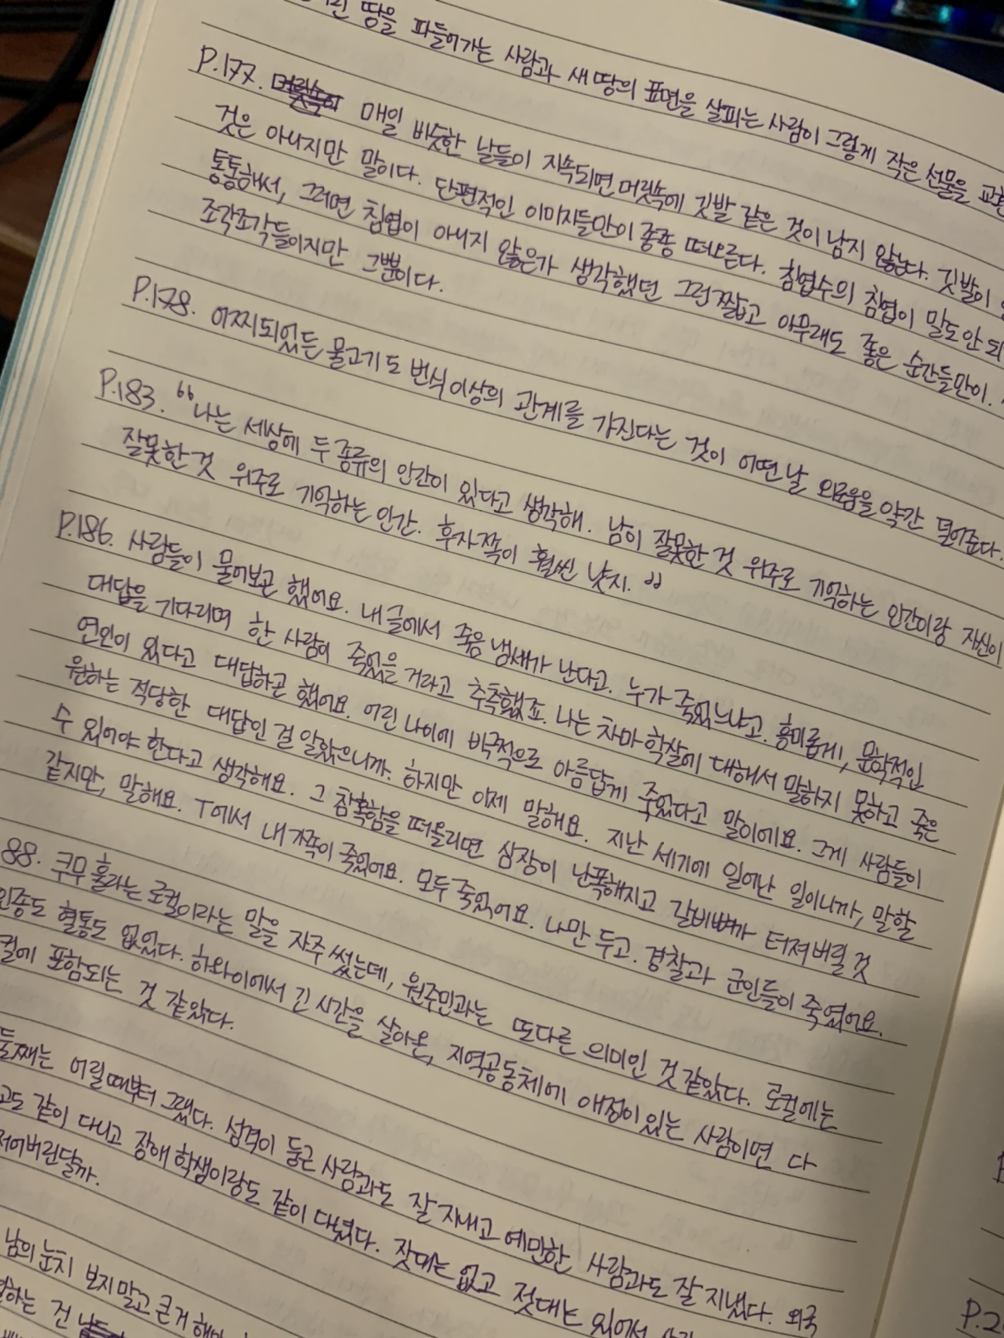 땅을 파들어가는 사람과 새 땅의 표면을 살피는 사람이 그렇게 작은 선물을
P.177. 매일 비슷한 날들이 지속되면 머릿속에 깃발 같은 것이 남지 않는다. 깃발이
것은 아니지만 말이다. 단편적인 이미지들만이 종종 떠오른다. 침엽수의 침엽이 말도 안 되
통통해서, 그러면 침엽이 아니지 않은가 생각했던 그런 짧고 아무래도 좋은 순간들만이.
조각조각들이지만 그뿐이다.
P.178. 어찌되었든 물고기도 번식 이상의 관계를 가진다는 것이 어떤 날 외로움을 약간 덜어준다.
P.183. “나는 세상에 두 종류의 인간이 있다고 생각해. 남이 잘못한 것 위주로 기억하는 인간이랑 자신이
잘못한 것 위주로 기억하는 인간. 후자 쪽이 훨씬 낫지.”
P.186. 사람들이 물어보곤 했어요. 내 글에서 죽음 냄새가 난다고. 누가 죽었느냐고. 흥미롭게, 문학적인
대답을 기다리며 한 사람이 죽었을 거라고 추측했죠. 나는 차마 학살에 대해서 말하지 못하고 죽은
연인이 있다고 대답하곤 했어요. 어린 나이에 비극적으로 아름답게 죽었다고 말이에요. 그게 사람들이
원하는 적당한 대답인 걸 알았으니까. 하지만 이제 말해요. 지난 세기에 일어난 일이니까, 말할
수 있어야 한다고 생각해요. 그 참혹함을 떠올리면 심장이 난폭해지고 갈비뼈가 터져버릴 것
같지만, 말해요. T에서 내 가족이 죽었어요. 모두 죽었어요. 나만 두고. 경찰과 군인들이 죽였어요.
88. 쿠무 훌라는 로컬이라는 말을 자주 썼는데, 원주민과는 또다른 의미인 것 같았다. 로컬에는
인종도 혈통도 없었다. 하와이에서 긴 시간을 살아온, 지역공동체에 애정이 있는 사람이면 다
컬에 포함되는 것 같았다.
둘째는 어릴 때부터 그랬다. 성격이 둥근 사람과도 잘 지내고 예민한 사람과도 잘 지냈다. 외국
같이 다니고 장애 학생이랑도 같이 다녔다. 잣대는 없고 젓대는 있어서
저어버린달까.
남의 눈치 보지 말고 큰 거
하는 건
P.2